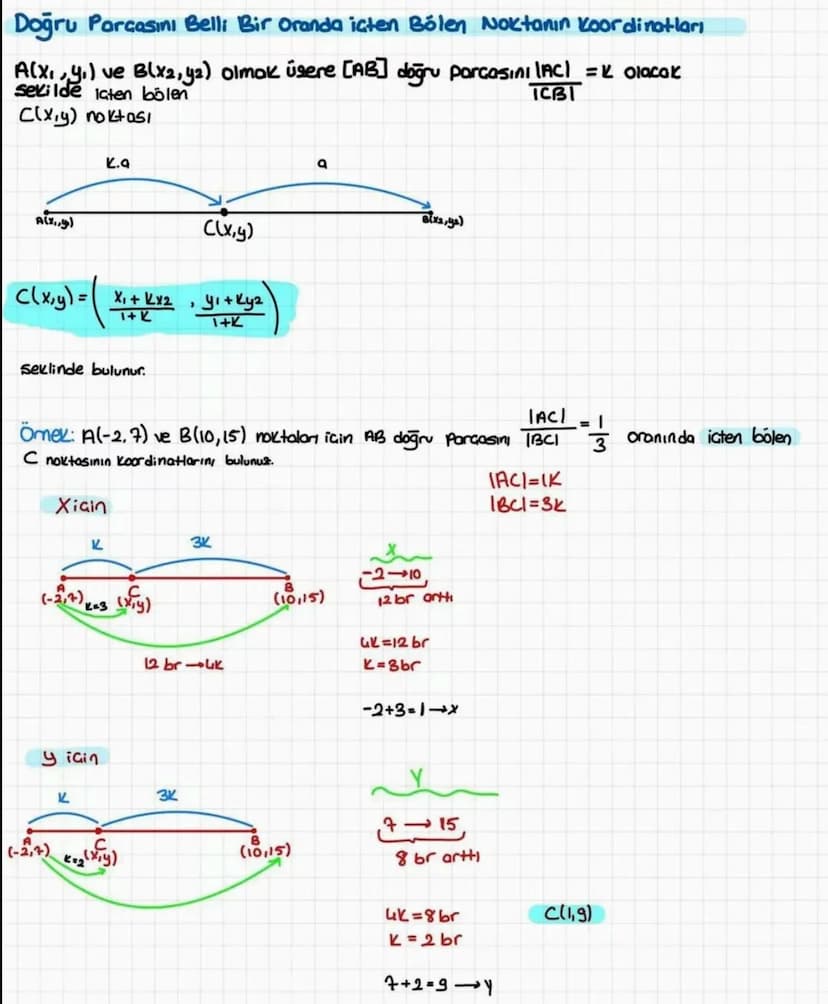 Doğru Parcasını Belli Bir Oranda içten Bölen Noktanın Koordinatları
A(x₁,y₁) ve B(x₂,y₂) olmak üsere [AB] doğru parcasını |AC|/|CB| = k olacak
sekilde icten bölen
C(x,y) noktası
k.a a
A(x₁,y₁) C(x,y) B(x₂,y₂)
C(x,y) = ( x₁+kx₂/1+k , y₁+ky₂/1+k )
seklinde bulunur.
Örnek: A(-2,7) ve B(10,15) noktaları icin AB doğru parcasını |AC|/|BC| = 1/3 oranında icten bölen
C noktasının koordinatlarını bulunuz.
|AC|=1k
|BC|=3k
X icin
k 3k
A C B
(-2,7) k=3 (x,y) (10,15)
12 br→4k
x
-2→10
12br arttı
4k=12br
k=3br
-2+3=1→x
y icin
k 3k
A C B
(-2,7) k=2 (x,y) (10,15)
y
7→15
8 br arttı
4k=8br
k=2br
7+2=9→y
C(1,9)